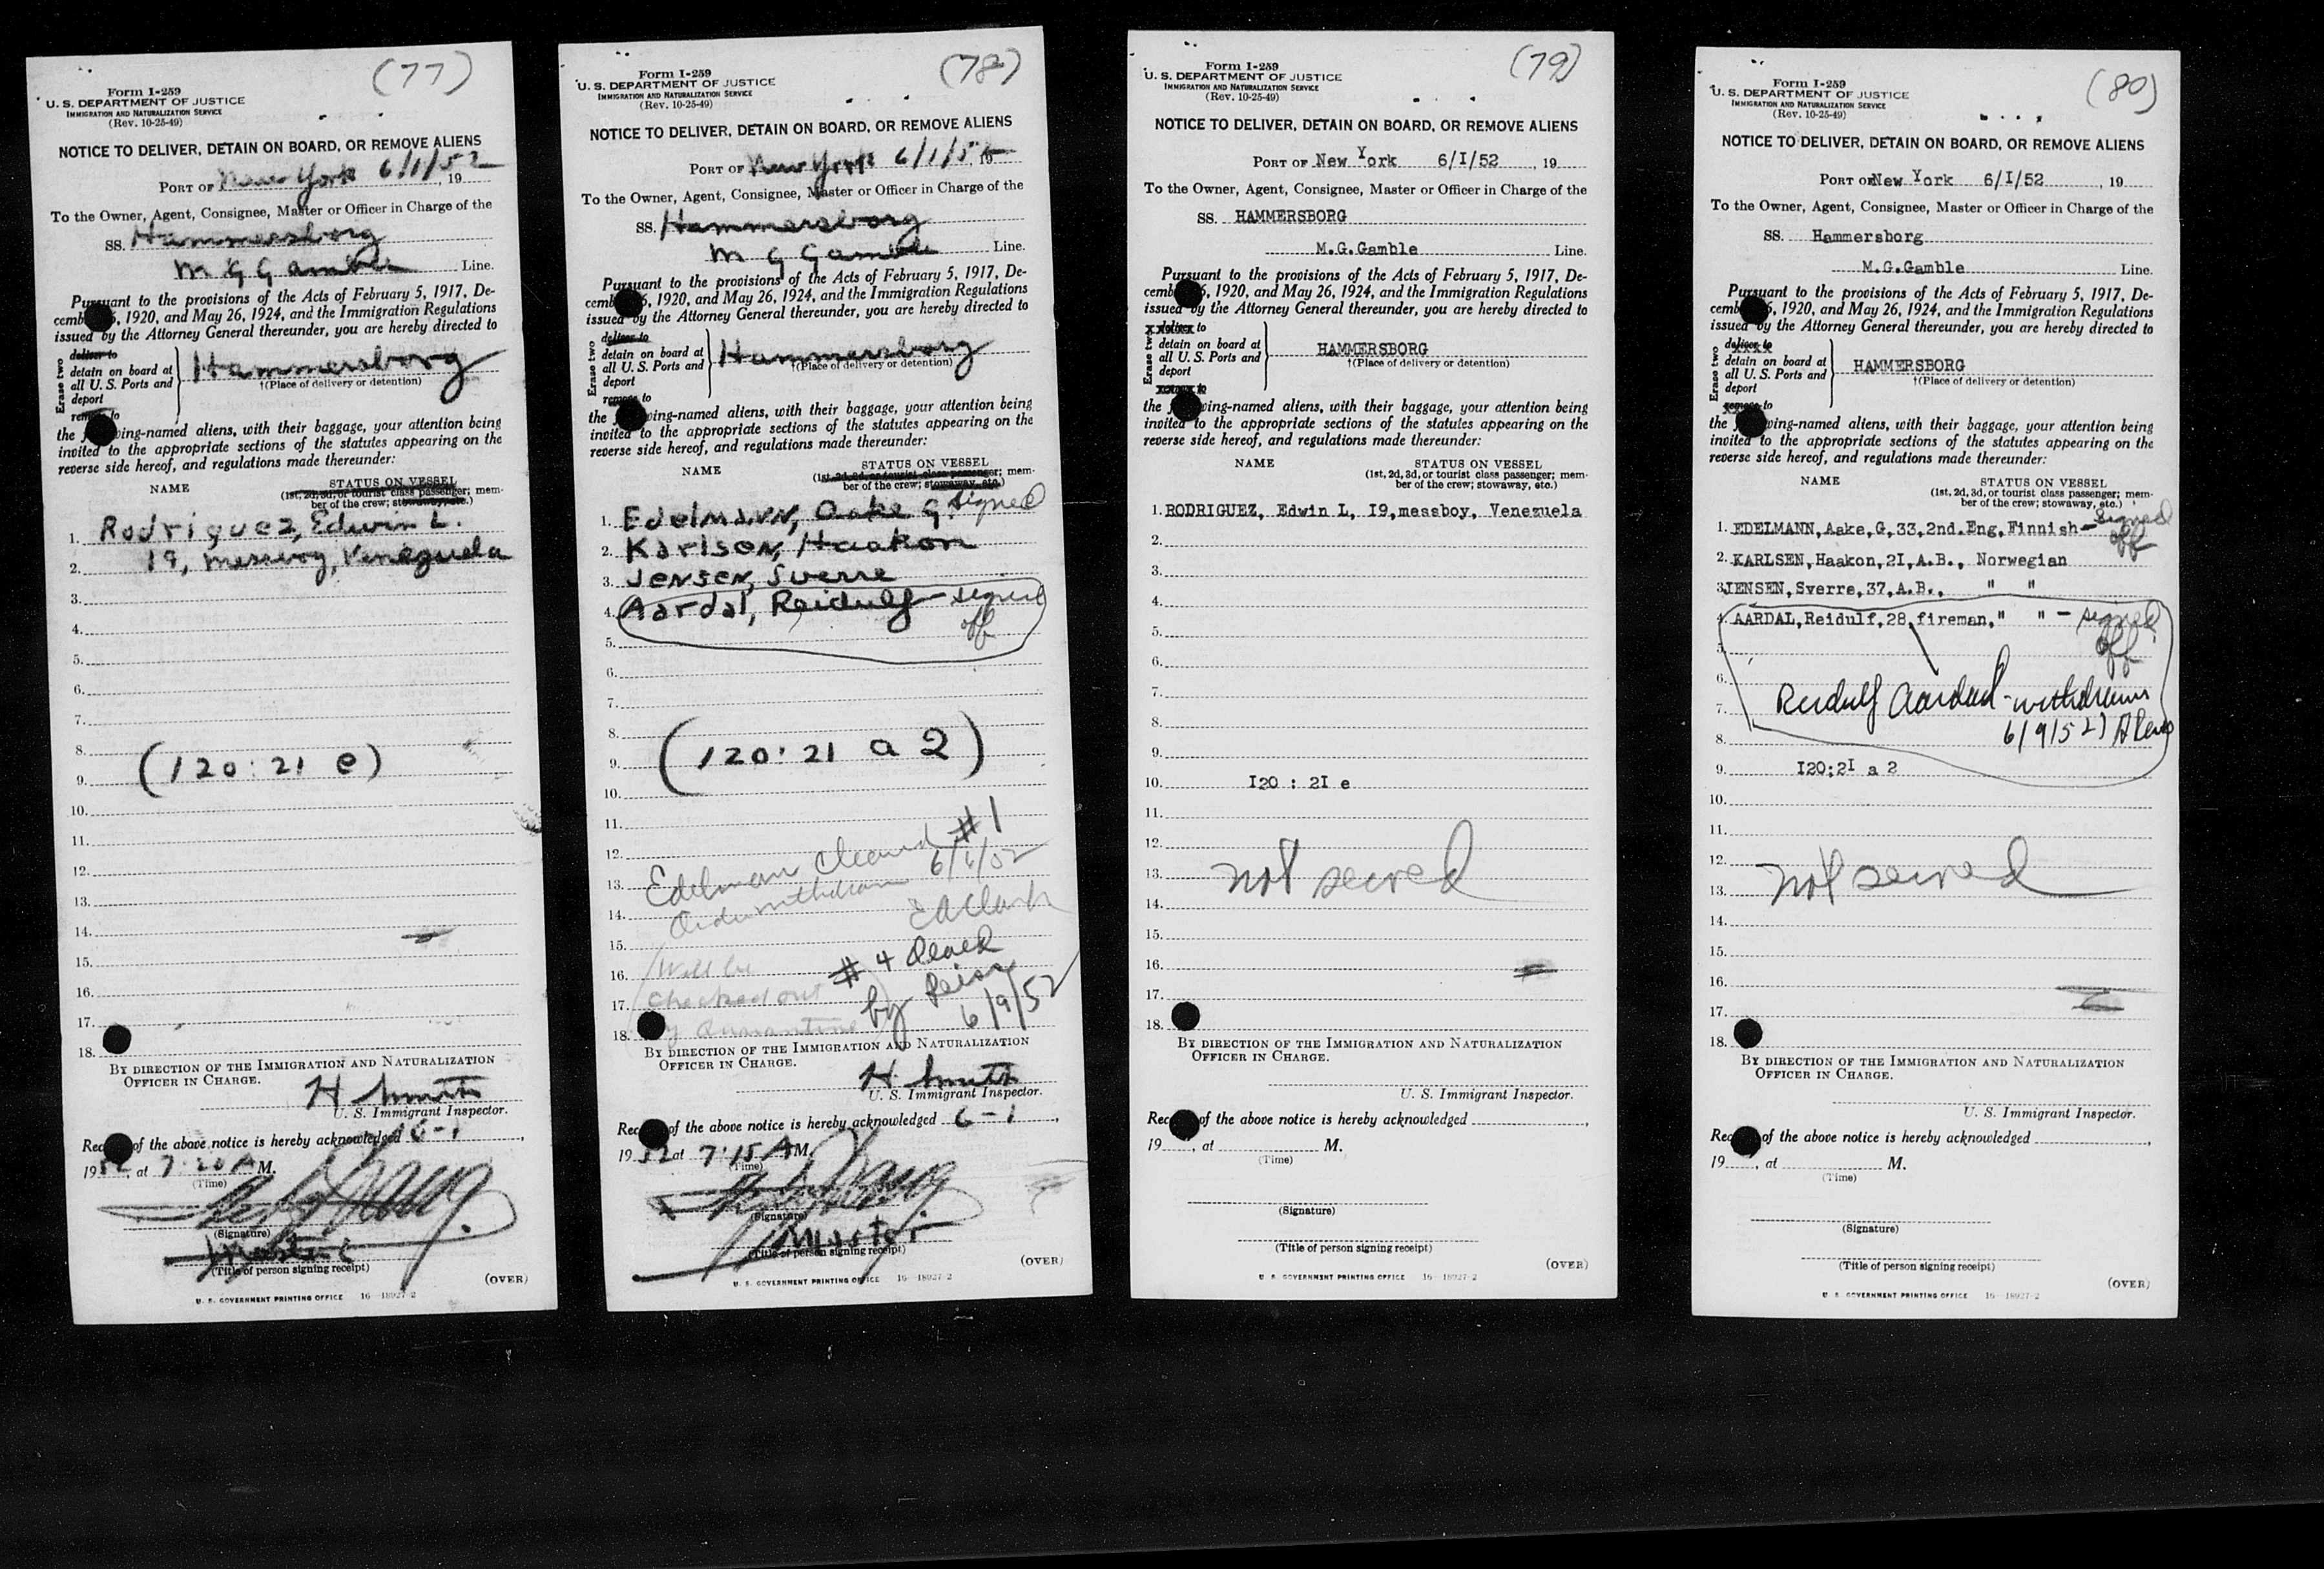 (77)
Form I-259
U. S. DEPARTMENT OF JUSTICE
IMMIGRATION AND NATURALIZATION SERVICE
(Rev. 10-25-49)
NOTICE TO DELIVER, DETAIN ON BOARD, OR REMOVE ALIENS
PORT OF New York 6/1/52, 19
To the Owner, Agent, Consignee, Master or Officer in Charge of the
SS. Hammersborg
M G Gamble Line.
Pursuant to the provisions of the Acts of February 5, 1917, De-
cemb 6, 1920, and May 26, 1924, and the Immigration Regulations
issued by the Attorney General thereunder, you are hereby directed to
Erase two
deliver to
detain on board at
all U. S. Ports and
deport
remove to
Hammersborg
†(Place of delivery or detention)
the f wing-named aliens, with their baggage, your attention being
invited to the appropriate sections of the statutes appearing on the
reverse side hereof, and regulations made thereunder:
NAME STATUS ON VESSEL
(1st, 2d, 3d, or tourist class passenger; mem-
ber of the crew; stowaway, etc.)
1. Rodriguez, Edwin L.
2. 19, messboy, Venezuela
3.
4.
5.
6.
7.
8.
9. (120:21 e)
10.
11.
12.
13.
14.
15.
16.
17.
18.
BY DIRECTION OF THE IMMIGRATION AND NATURALIZATION
OFFICER IN CHARGE.
H Smith
U. S. Immigrant Inspector.
Rec of the above notice is hereby acknowledged 6-1,
1952, at 7:20 A M.
(Time)
(Signature)
Master
(Title of person signing receipt)
(OVER)
U. S. GOVERNMENT PRINTING OFFICE 16—18927-2
(78)
Form I-259
U. S. DEPARTMENT OF JUSTICE
IMMIGRATION AND NATURALIZATION SERVICE
(Rev. 10-25-49)
NOTICE TO DELIVER, DETAIN ON BOARD, OR REMOVE ALIENS
PORT OF New York 6/1/52, 19
To the Owner, Agent, Consignee, Master or Officer in Charge of the
SS. Hammersborg
M G Gamble Line.
Pursuant to the provisions of the Acts of February 5, 1917, De-
cemb 6, 1920, and May 26, 1924, and the Immigration Regulations
issued by the Attorney General thereunder, you are hereby directed to
Erase two
deliver to
detain on board at
all U. S. Ports and
deport
remove to
Hammersborg
†(Place of delivery or detention)
the f wing-named aliens, with their baggage, your attention being
invited to the appropriate sections of the statutes appearing on the
reverse side hereof, and regulations made thereunder:
NAME STATUS ON VESSEL
(1st, 2d, 3d, or tourist class passenger; mem-
ber of the crew; stowaway, etc.)
1. Edelmann, Aake G. signed
2. Karlson, Haakon
3. Jensen, Sverre
4. Aardal, Reidulf - signed
5. off
6.
7.
8.
9. (120:21 a 2)
10.
11. #1
12. Edelman cleared 6/6/52
13. Order withdrawn
14. EAClark
15.
16. Will be #4 cleared
17. checked out by
18. by Quarantine 6/9/52
BY DIRECTION OF THE IMMIGRATION AND NATURALIZATION
OFFICER IN CHARGE.
H. Smith
U. S. Immigrant Inspector.
Rec of the above notice is hereby acknowledged 6-1,
1952 at 7:15 A M.
(Time)
(Signature)
Master
(Title of person signing receipt)
(OVER)
U. S. GOVERNMENT PRINTING OFFICE 16—18927-2
(79)
Form I-259
U. S. DEPARTMENT OF JUSTICE
IMMIGRATION AND NATURALIZATION SERVICE
(Rev. 10-25-49)
NOTICE TO DELIVER, DETAIN ON BOARD, OR REMOVE ALIENS
PORT OF New York 6/I/52, 19
To the Owner, Agent, Consignee, Master or Officer in Charge of the
SS. HAMMERSBORG
M.G.Gamble Line.
Pursuant to the provisions of the Acts of February 5, 1917, De-
cemb 6, 1920, and May 26, 1924, and the Immigration Regulations
issued by the Attorney General thereunder, you are hereby directed to
Erase two
deliver to
detain on board at
all U. S. Ports and
deport
remove to
HAMMERSBORG
†(Place of delivery or detention)
the f wing-named aliens, with their baggage, your attention being
invited to the appropriate sections of the statutes appearing on the
reverse side hereof, and regulations made thereunder:
NAME STATUS ON VESSEL
(1st, 2d, 3d, or tourist class passenger; mem-
ber of the crew; stowaway, etc.)
1. RODRIGUEZ, Edwin L, I9, messboy, Venezuela
2.
3.
4.
5.
6.
7.
8.
9.
10. I20 : 2I e
11.
12.
13. not served
14.
15.
16.
17.
18.
BY DIRECTION OF THE IMMIGRATION AND NATURALIZATION
OFFICER IN CHARGE.
U. S. Immigrant Inspector.
Rec of the above notice is hereby acknowledged ,
19 , at M.
(Time)
(Signature)
(Title of person signing receipt)
(OVER)
U. S. GOVERNMENT PRINTING OFFICE 16—18927-2
(80)
Form I-259
U. S. DEPARTMENT OF JUSTICE
IMMIGRATION AND NATURALIZATION SERVICE
(Rev. 10-25-49)
NOTICE TO DELIVER, DETAIN ON BOARD, OR REMOVE ALIENS
PORT OF New York 6/I/52, 19
To the Owner, Agent, Consignee, Master or Officer in Charge of the
SS. Hammersborg
M.G.Gamble Line.
Pursuant to the provisions of the Acts of February 5, 1917, De-
cemb 6, 1920, and May 26, 1924, and the Immigration Regulations
issued by the Attorney General thereunder, you are hereby directed to
Erase two
deliver to
detain on board at
all U. S. Ports and
deport
remove to
HAMMERSBORG
†(Place of delivery or detention)
the f wing-named aliens, with their baggage, your attention being
invited to the appropriate sections of the statutes appearing on the
reverse side hereof, and regulations made thereunder:
NAME STATUS ON VESSEL
(1st, 2d, 3d, or tourist class passenger; mem-
ber of the crew; stowaway, etc.)
1. EDELMANN, Aake, G, 33, 2nd. Eng, Finnish - signed off
2. KARLSEN, Haakon, 2I, A.B., Norwegian
3. JENSEN, Sverre, 37, A.B., " "
4. AARDAL, Reidulf, 28, fireman, " " - signed
5. off
6.
7. Reidulf Aardal - withdrawn
8. 6/9/52
9. I20:2I a 2
10.
11.
12.
13. not served
14.
15.
16.
17.
18.
BY DIRECTION OF THE IMMIGRATION AND NATURALIZATION
OFFICER IN CHARGE.
U. S. Immigrant Inspector.
Rec of the above notice is hereby acknowledged ,
19 , at M.
(Time)
(Signature)
(Title of person signing receipt)
(OVER)
U. S. GOVERNMENT PRINTING OFFICE 16—18927-2